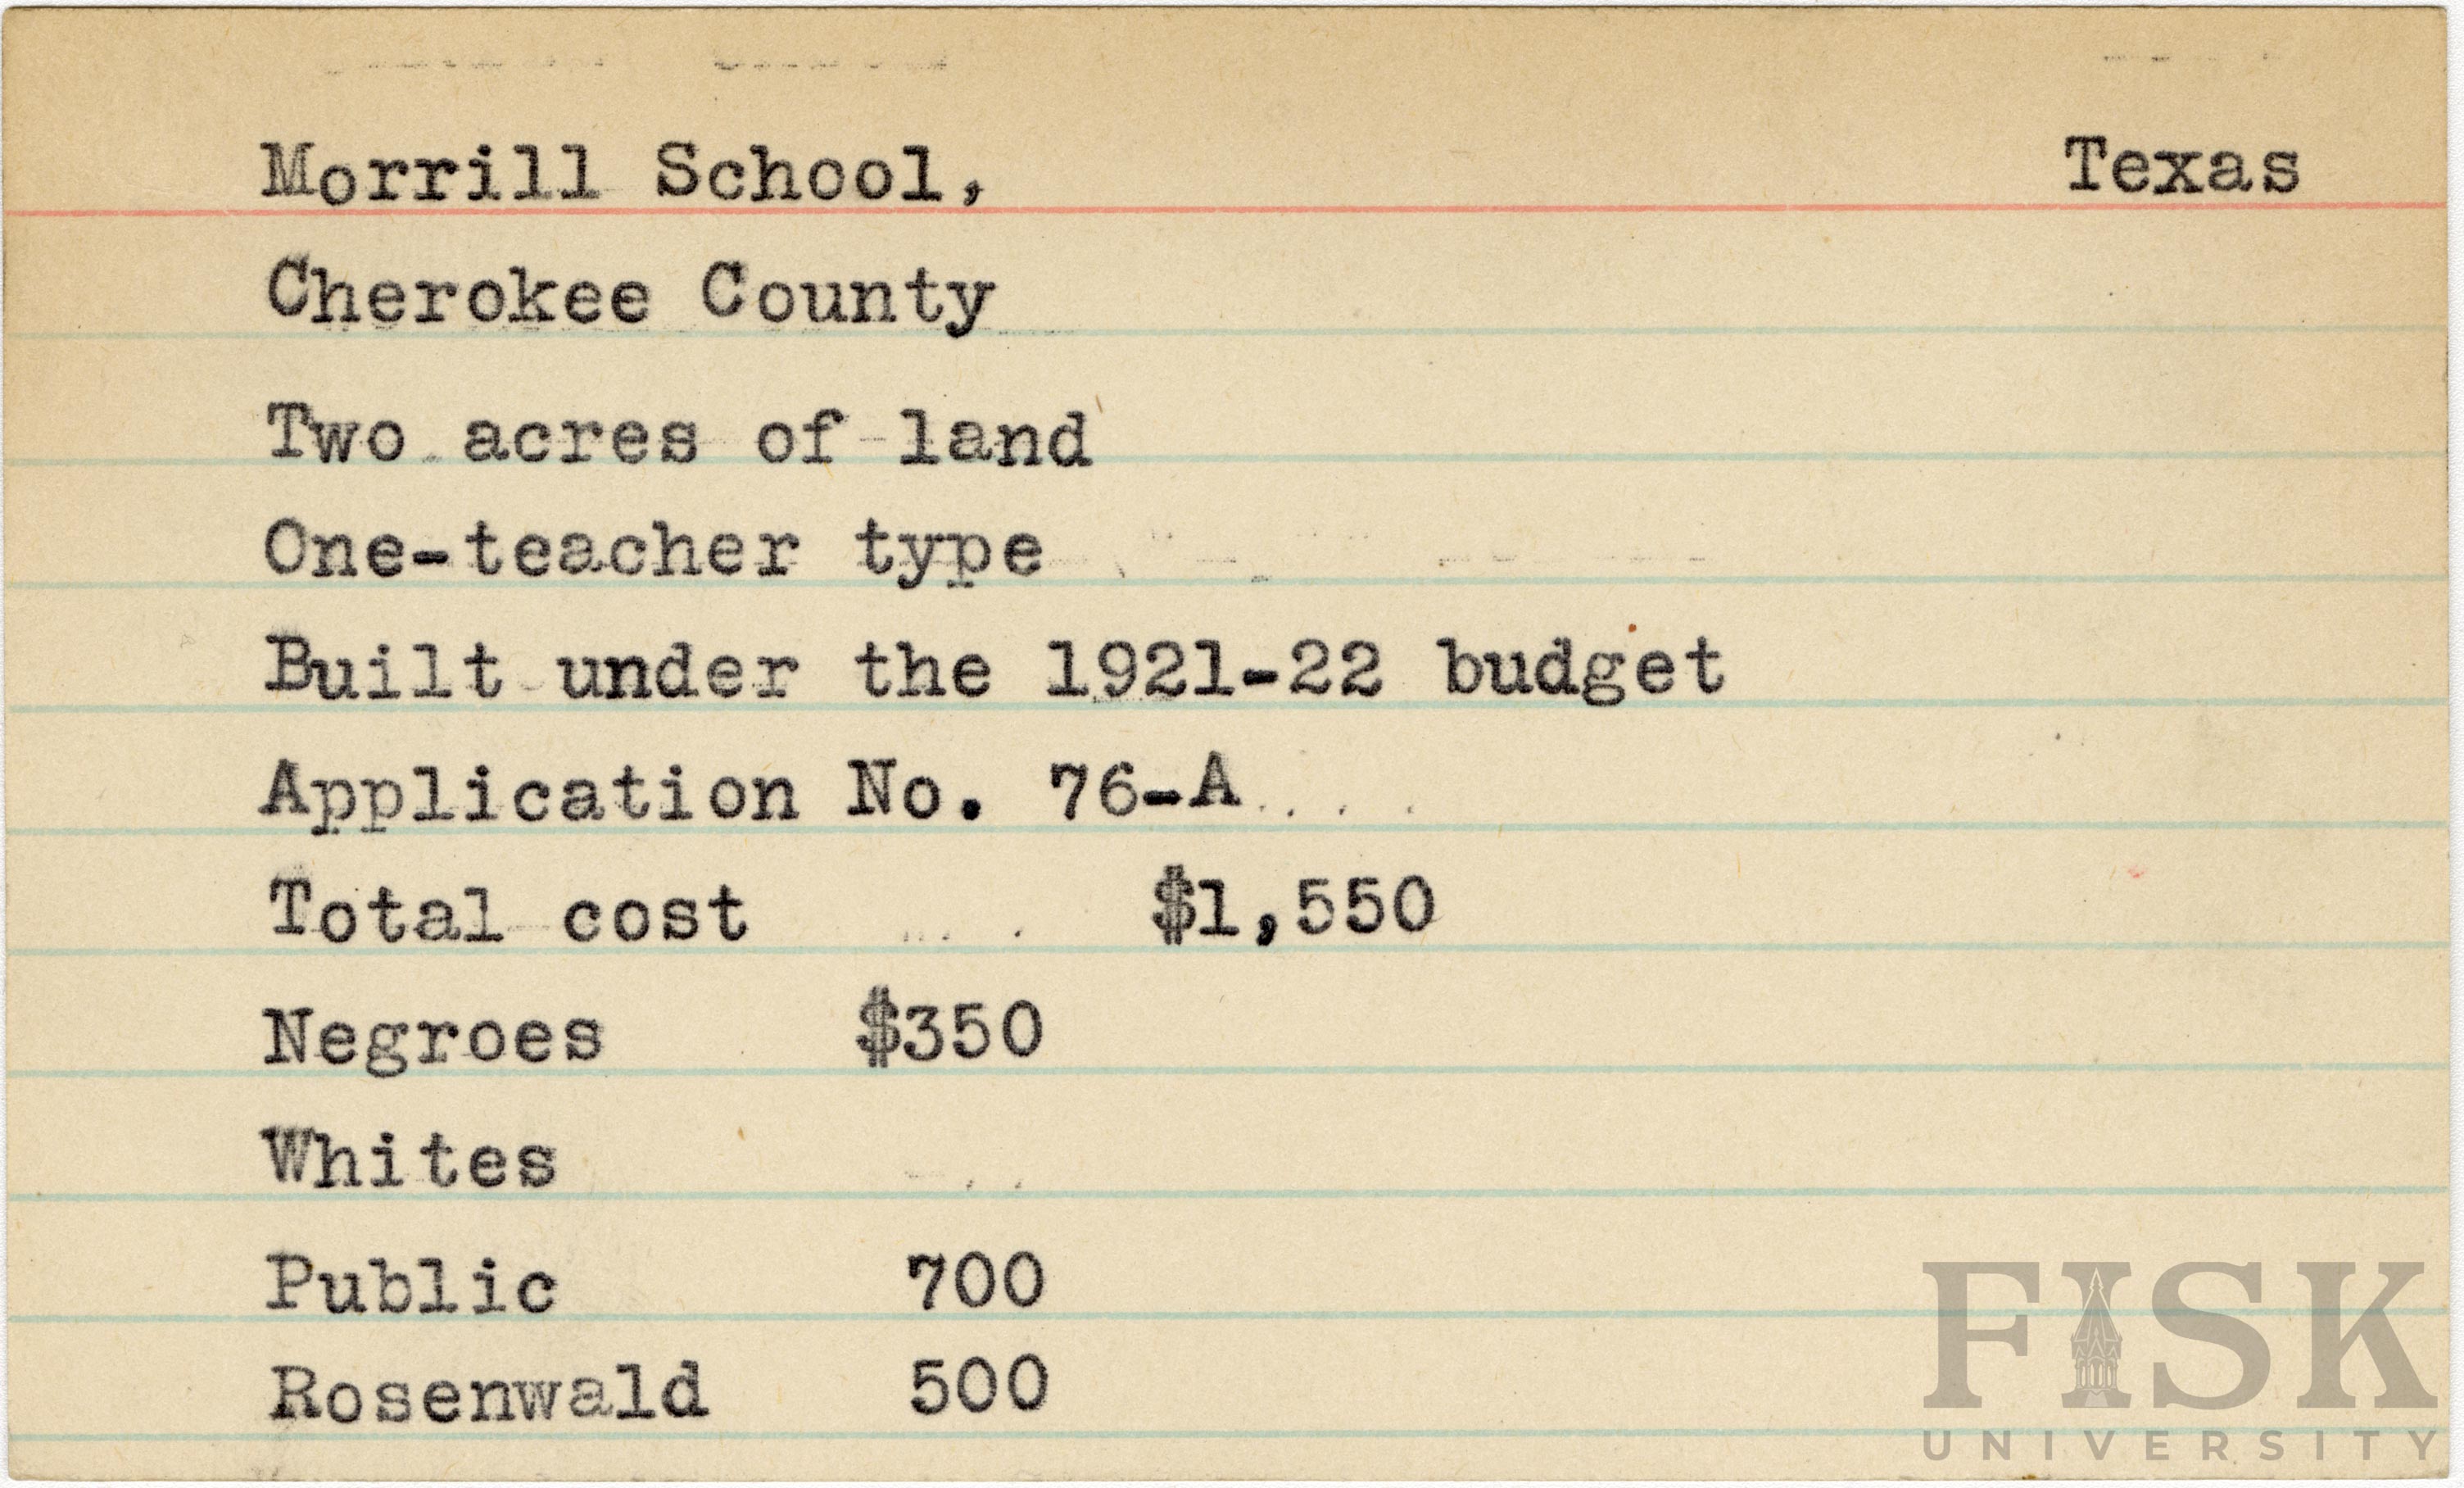 Morrill School, Texas
Cherokee County
Two acres of land
One-teacher type
Built under the 1921-22 budget
Application No. 76-A
Total cost $1,550
Negroes $350
Whites
Public 700
Rosenwald 500
FISK
UNIVERSITY